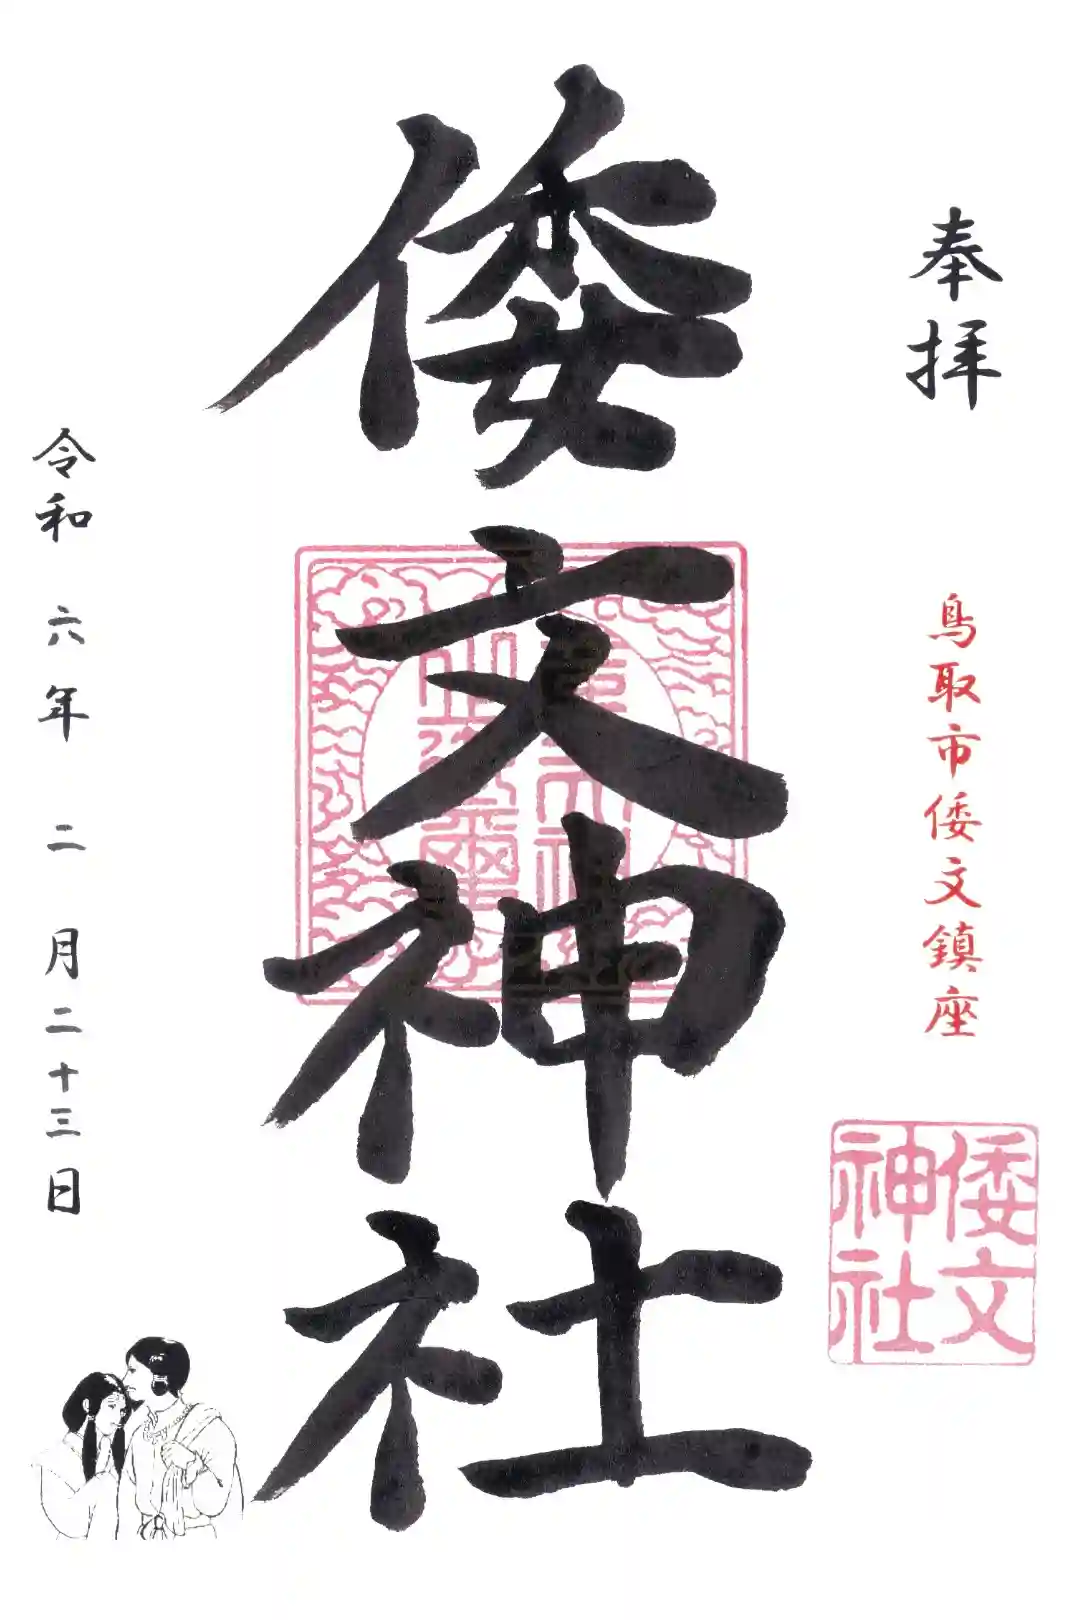 奉拝
鳥取市倭文鎮座
倭文神社
倭文
神社
令和六年二月二十三日